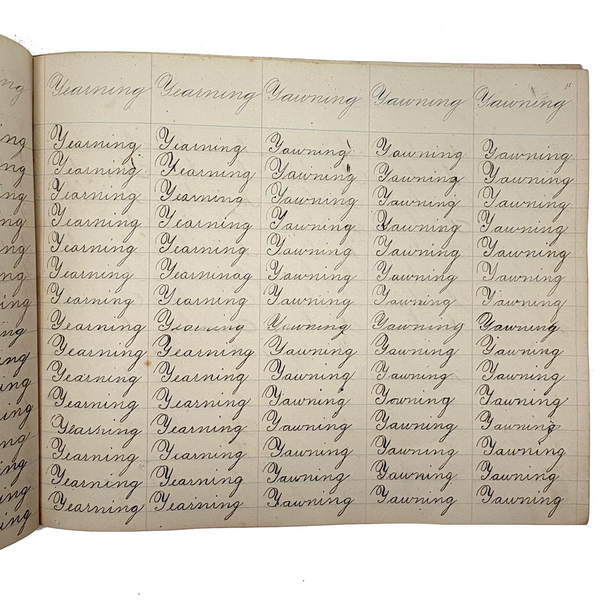 Yearning Yearning Yawning Yawning Yawning
Yearning Yearning Yawning Yawning Yawning
Yearning Yearning Yawning Yawning Yawning
Yearning Yearning Yawning Yawning Yawning
Yearning Yearning Yawning Yawning Yawning
Yearning Yearning Yawning Yawning Yawning
Yearning Yearninag Yawning Yawning Yawning
Yearning Yearning Yawning Yawning Yawning
Yearning Yearning Yawning Yawning Yawning
Yearning Yearning Yawning Yawning Yawning
Yearning Yearning Yawning Yawning Yawning
Yearning Yearning Yawning Yawning Yawning
Yearning Yearning Yawning Yawning Yawning
Yearning Yearning Yawning Yawning Yawning
Yearning Yearning Yawning Yawning Yawning
Yearning Yearning Yawning Yawning Yawning